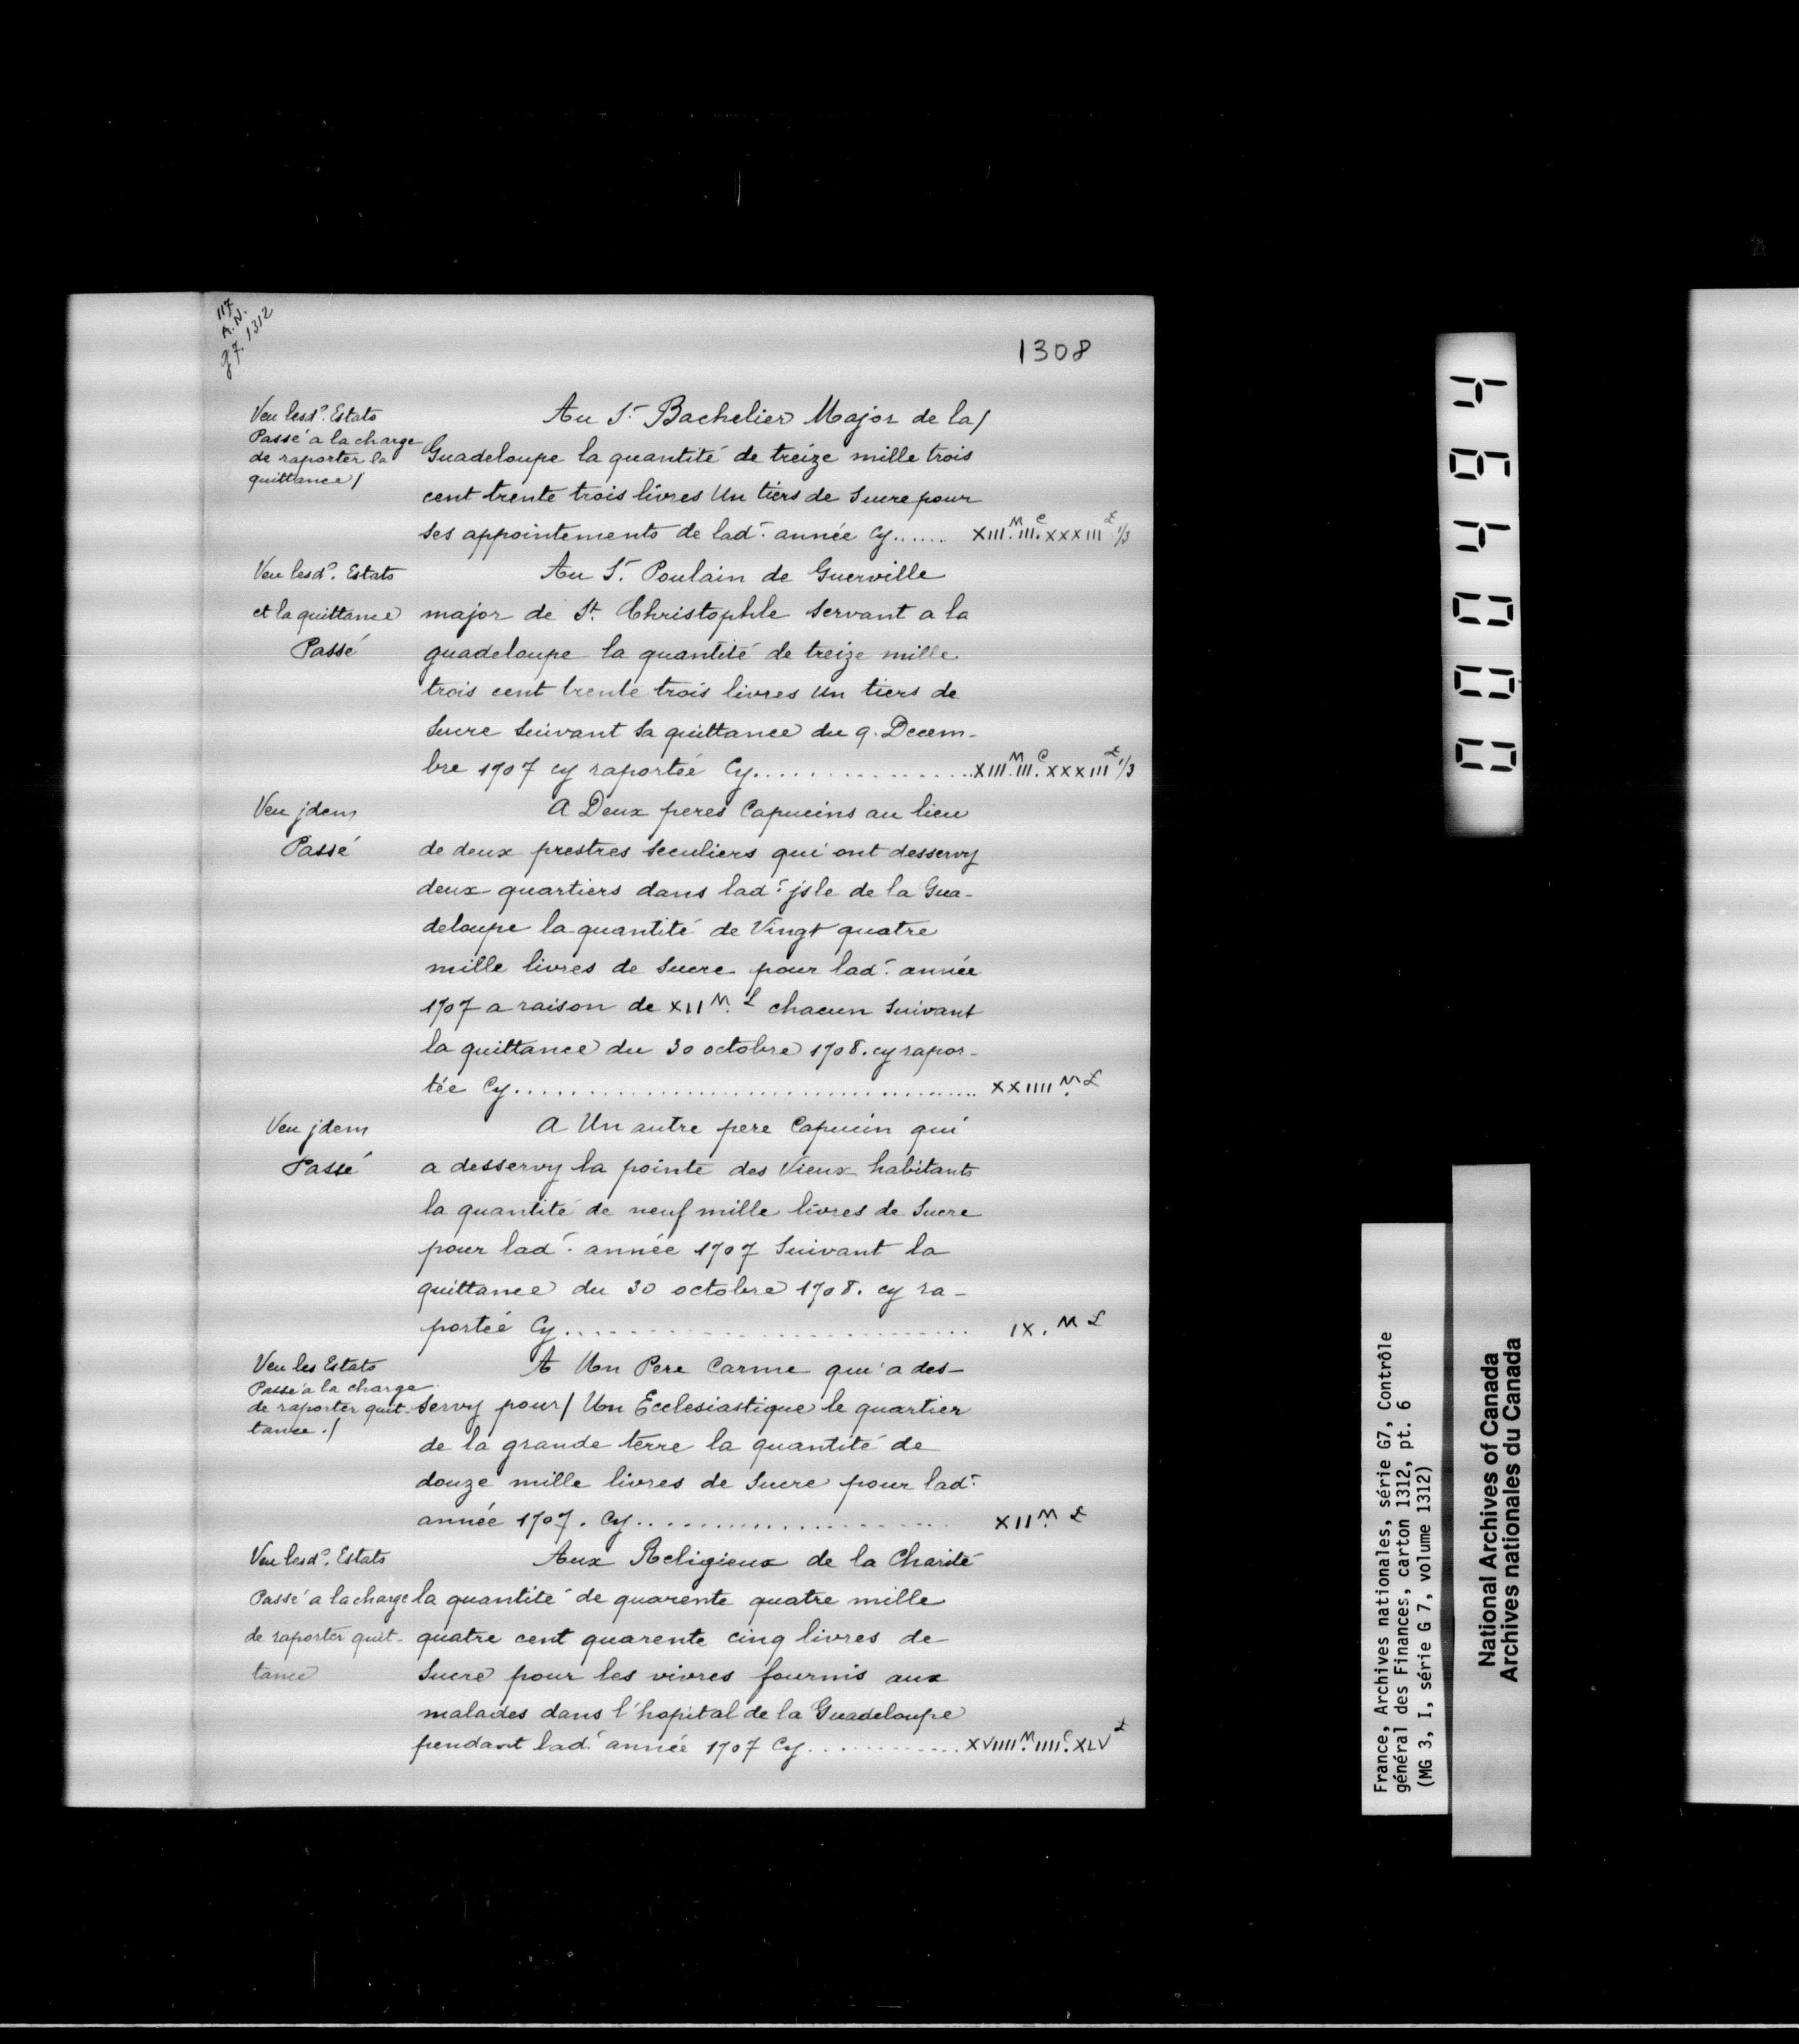 117
A.N.
G7. 1312
1308
Veu lesd.^s Estats
Passé a la charge
de raporter la
quittance /
Au S.^r Bachelier Major de la /
Guadeloupe la quantité de treize mille trois
cent trente trois livres Un tiers de Sucre pour
ses appointements de lad.^e année Cy...... XIII.^M III.^C XXXIII^£ 1/3
Veu lesd.^s Estats
et la quittance
Passé
Au S.^r Poulain de Guerville
major de S^t. Christophle servant a la
guadeloupe la quantité de treize mille
trois cent trente trois livres un tiers de
Sucre suivant sa quittance du 9. Decem-
bre 1707 cy raportée Cy................. XIII.^M III.^C XXXIII^£ 1/3
Veu jdem
Passé
A Deux peres Capucins au lieu
de deux prestres seculiers qui ont desservy
deux quartiers dans lad.^e jsle de la Gua-
deloupe la quantité de Vingt quatre
mille livres de Sucre pour lad.^e année
1707 a raison de XII.^M £ chacun Suivant
la quittance du 30 octobre 1708. cy rapor-
tée Cy...................................... XXIIII.^M £
Veu jdem
Passé
A Un autre pere Capucin qui
a desservy la pointe des Vieux habitants
la quantité de neuf mille livres de Sucre
pour lad.^e année 1707 Suivant la
quittance du 30 octobre 1708. cy ra-
portée Cy............................. IX.^M £
Veu les Estats
Passé a la charge
de raporter quit-
tance ./
A Un Pere Carme qui a des-
servy pour / Un Ecclesiastique le quartier
de la grande terre la quantité de
douze mille livres de Sucre pour lad.^e
année 1707. Cy....................... XII.^M £
Veu lesd.^s Estats
Passé a la charge
de raporter quit-
tance
Aux Religieux de la Charité
la quantité de quarente quatre mille
quatre cent quarente cinq livres de
Sucre pour les vivres fournis aux
malades dans l'hopital de la Guadeloupe
pendant lad.^e année 1707 Cy............. XVIIII.^M IIII.^C XLV^£
00464
France, Archives nationales, série G7, Contrôle
général des Finances, carton 1312, pt. 6
(MG 3, I, série G 7, volume 1312)
National Archives of Canada
Archives nationales du Canada